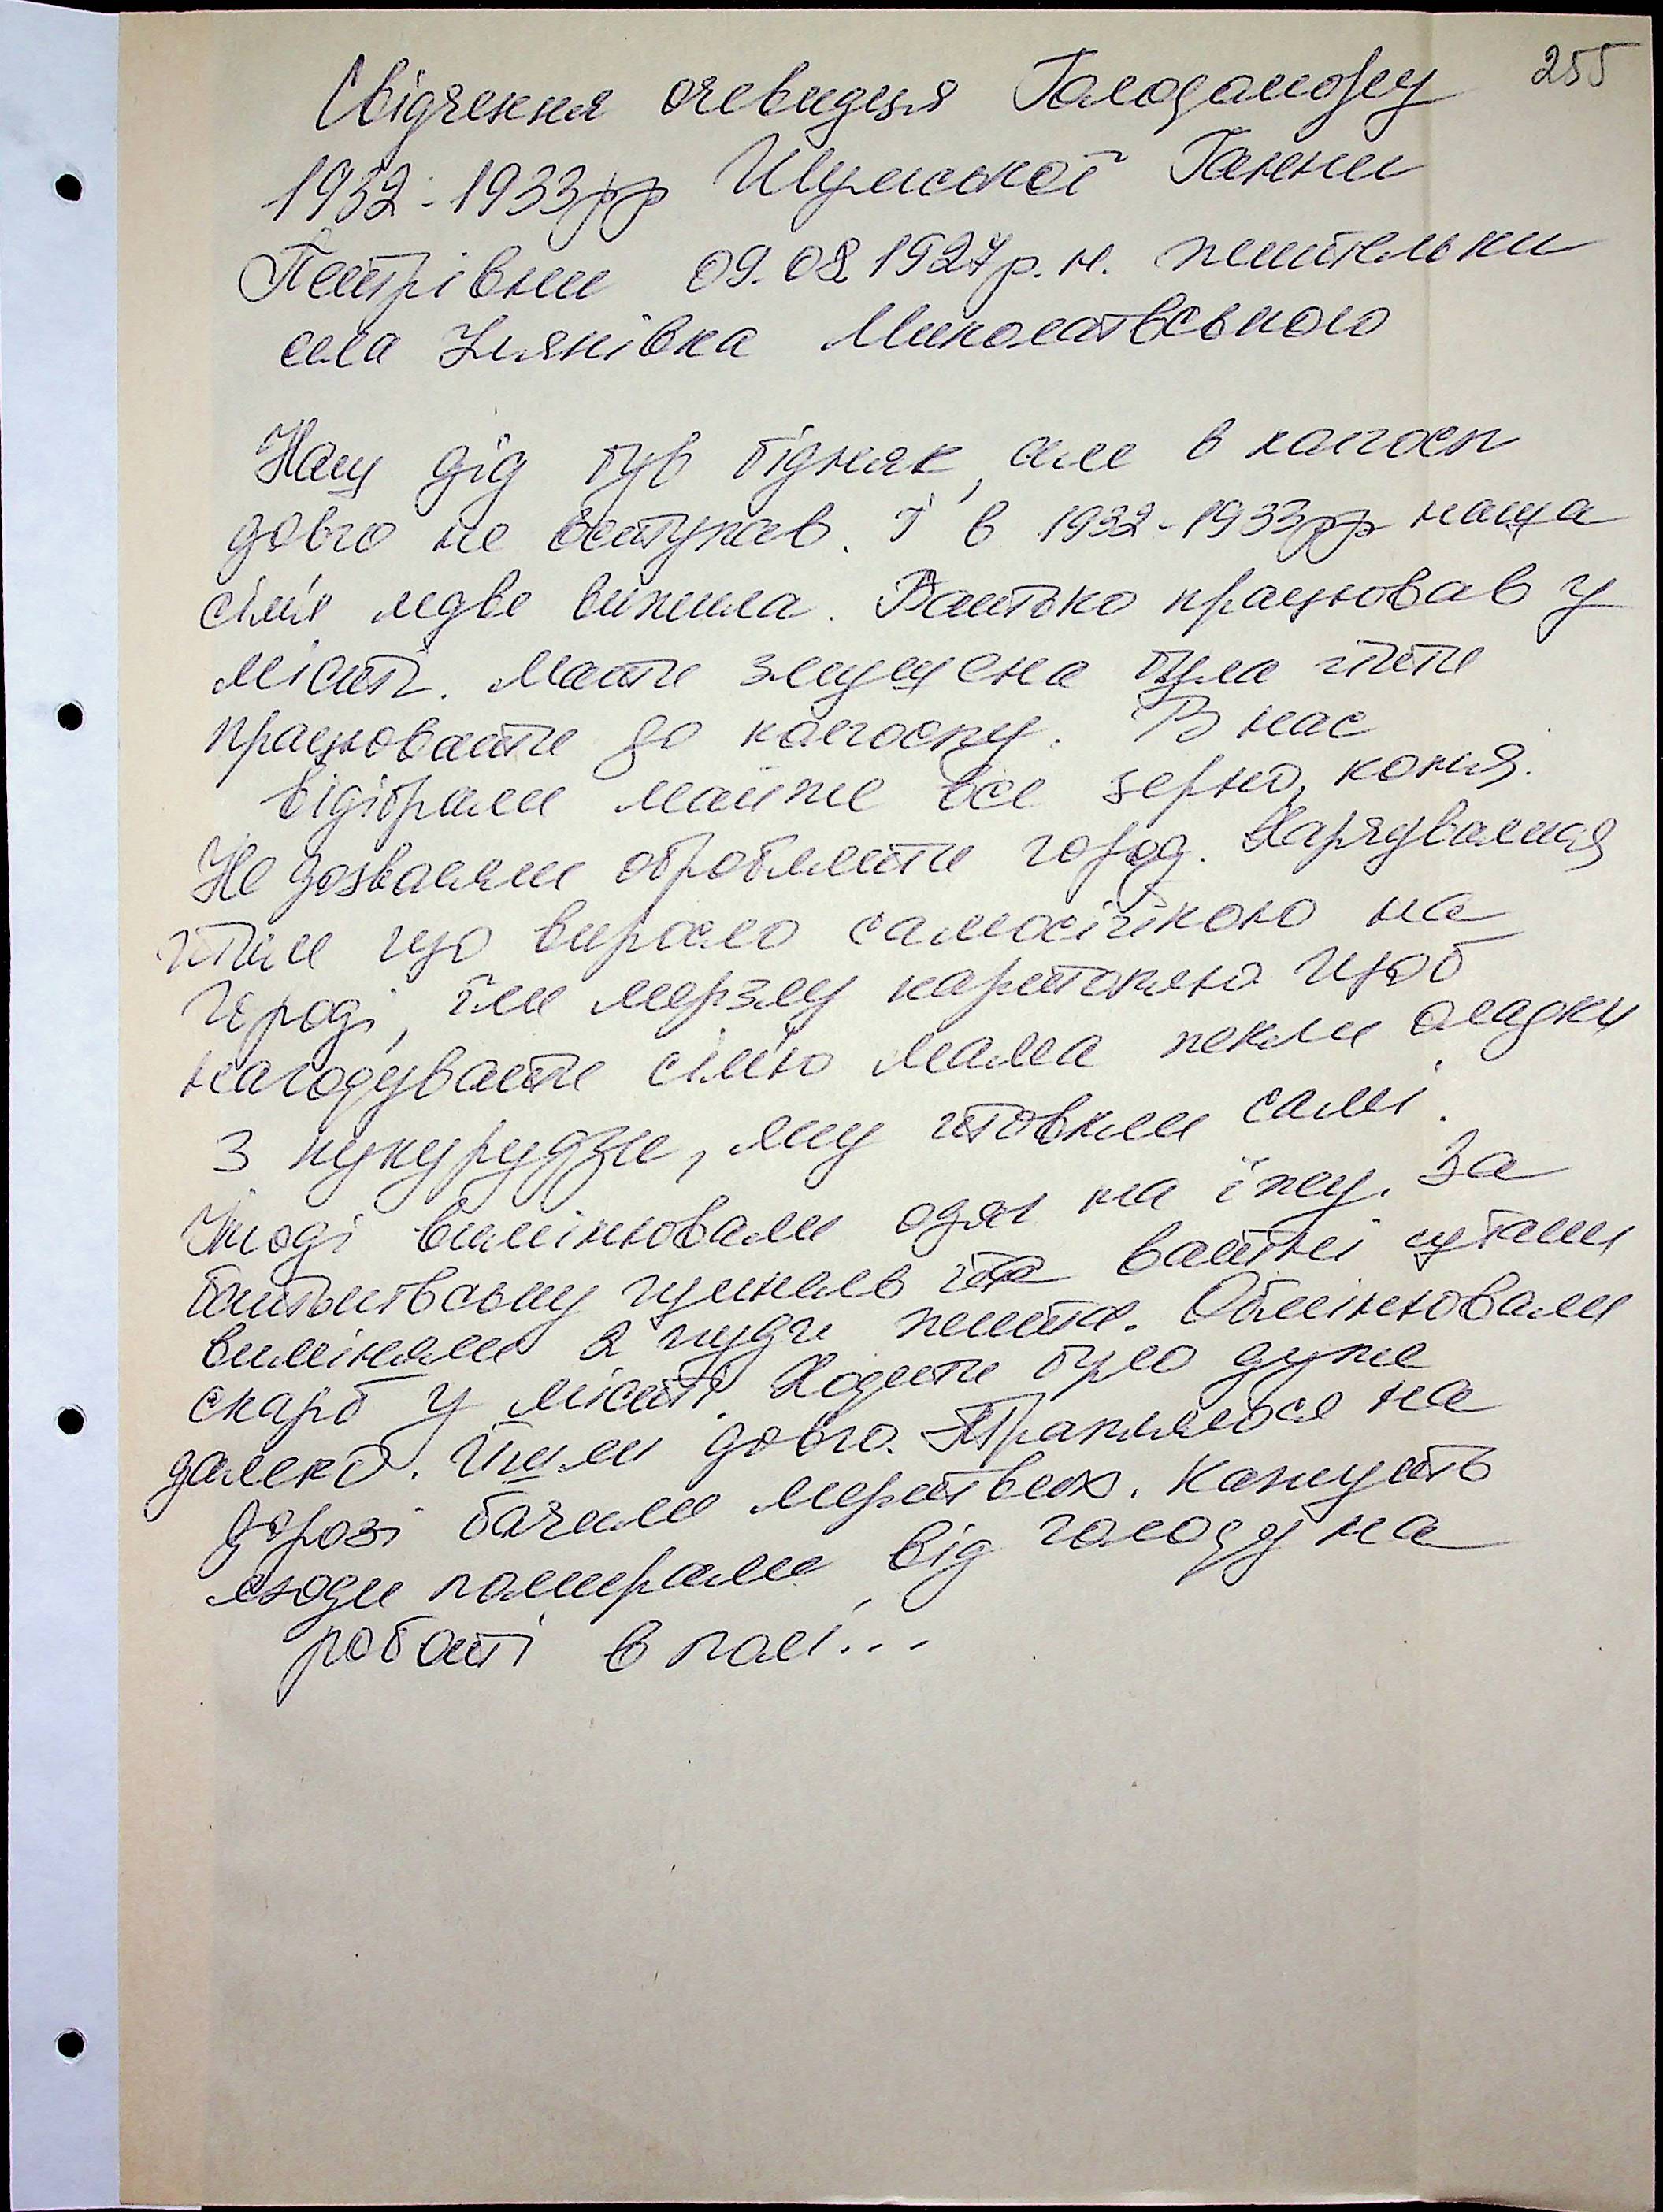 255
Свідчення очевидця Голодомору
1932-1933рр Шумської Ганни
Петрівни 09.08.1927р.н. жительки
села Улянівка Миколаївського
Наш дід був бідняк, але в колгосп
довго не вступав. І в 1932-1933рр наша
сім'я ледве вижила. Батько працював у
місті. Мати змушена була іти
працювати до колгоспу. В нас
відібрали майже все зерно, коня.
Не дозволяли обробляти город. Харчувалися
тим що виросло самосійкою на
городі, їли мерзлу картоплю щоб
нагодувати сім'ю мама пекли оладки
з кукурудзи, яку товкли самі.
Іноді вимінювали одяг на їжу. За
батьківську шинель та ватні штани
виміняли 2 пуди жита. Обмінювали
скарб у місті. Ходити було дуже
далеко. Йшли довго. Траплялося на
дорозі бачили мертвих. Кажуть
люди помирали від голоду на
роботі в полі...